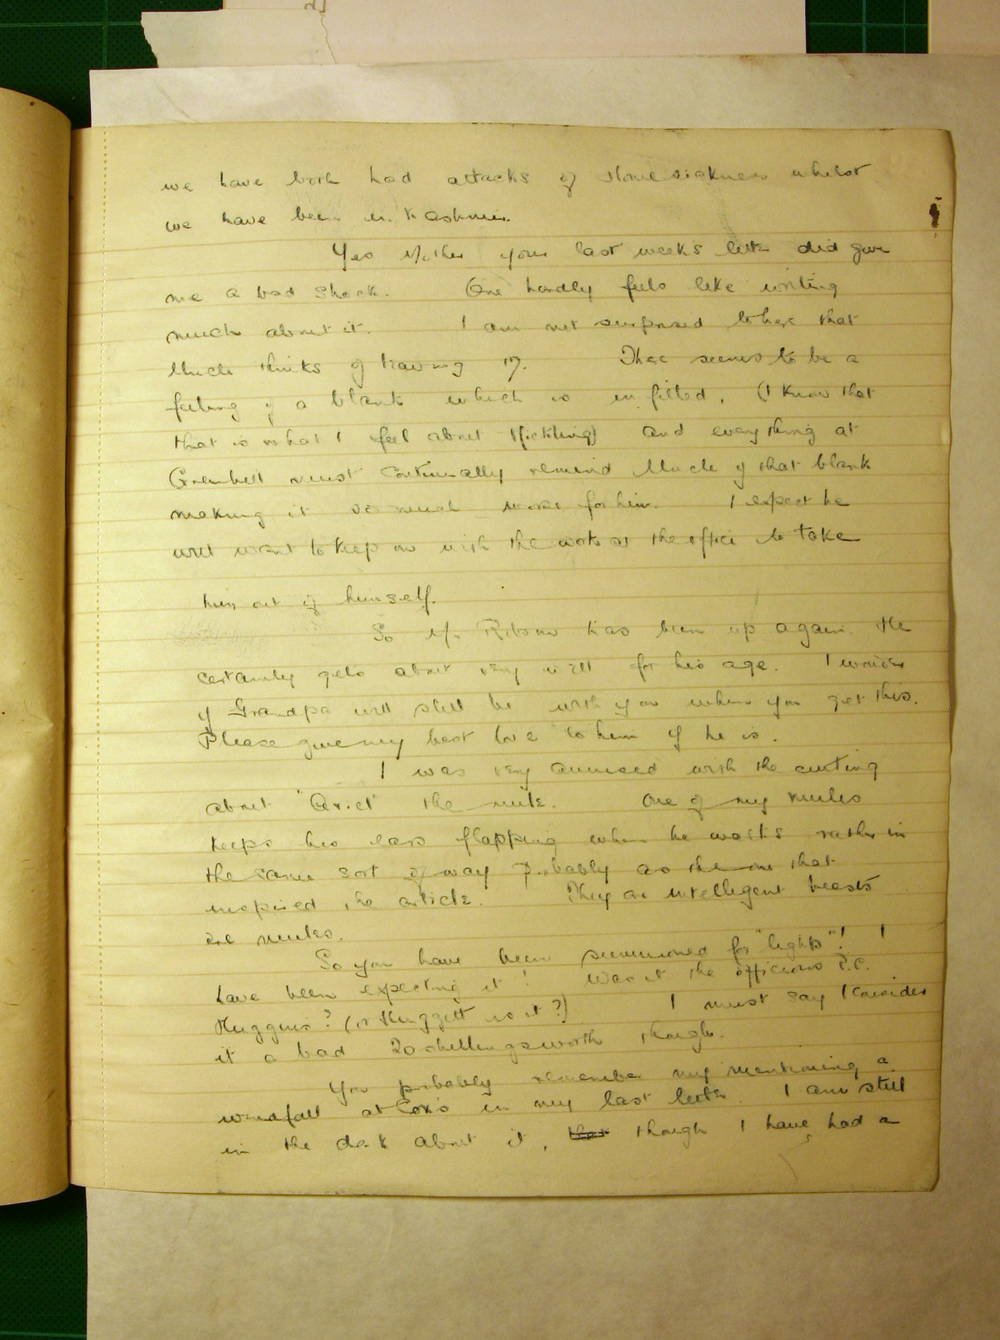 we have both had attacks of home sickness whilst
we have been in Kashmir.
Yes Mother your last weeks letter did give
me a bad shock. One hardly feels like writing
much about it. I am not surprised to hear that
Uncle thinks of leaving. There seems to be a
feeling of a blank which is unfilled, (I know that
that is what I feel about) and everything at
must continually remind Uncle of that blank
making it so much worse for him. I expect he
will want to keep on with the work at the office to take
him out of himself.
So Mr Ritson has been up again. He
certainly gets about very well for his age. I wonder
if Grandpa will still be with you when you get this.
Please give my best love to him if he is.
I was very amused with the cutting
about the mule. One of my mules
keeps his ears flapping when he walks rather in
the same sort of way probably as the one that
inspired the article. They are intelligent beasts
are mules.
So you have been summoned for "lights"! I
have been expecting it! Was it the officious P.C.
Huggins? (or Huggett is it?) I must say I consider
it a bad 20 shillingsworth though.
You probably remember my mentioning a
windfall at Cox's in my last letter. I am still
in the dark about it, though I have had a